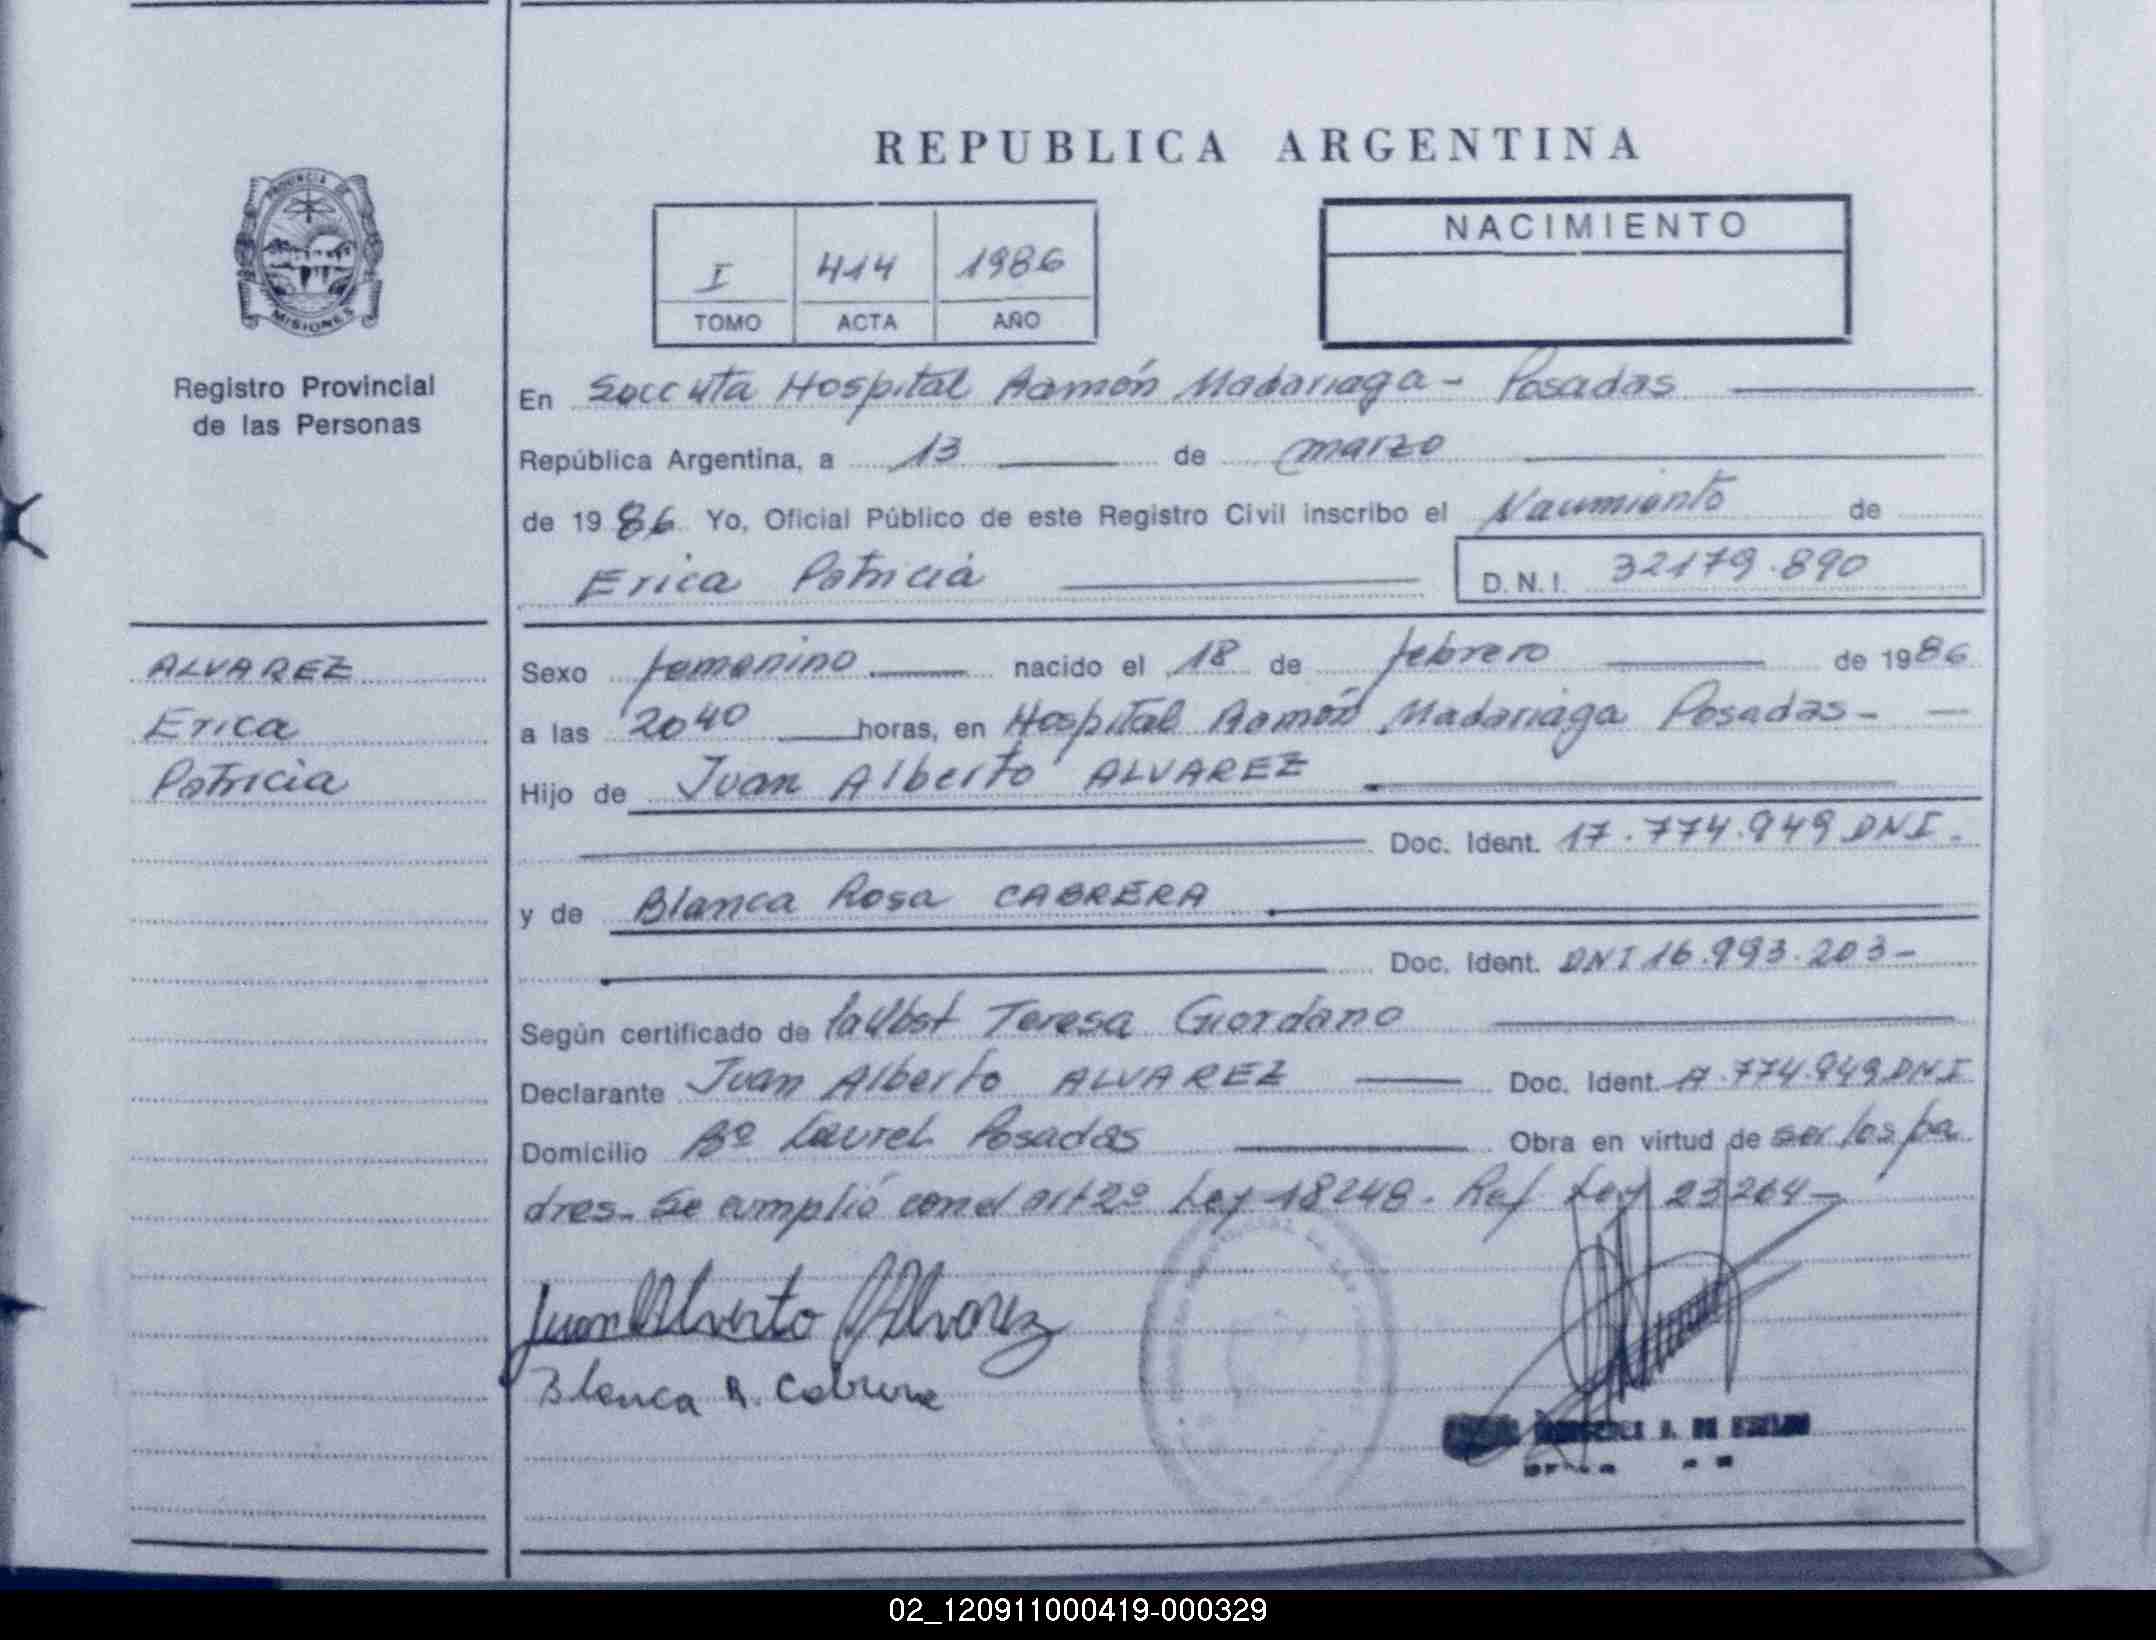 REPUBLICA ARGENTINA
PROVINCIA DE
MISIONES
Registro Provincial
de las Personas
I 414 1986
TOMO ACTA AÑO
NACIMIENTO
En Hospital Ramón Madariaga - Posadas
República Argentina, a 13 de marzo
de 1986 Yo, Oficial Público de este Registro Civil inscribo el Nacimiento de
Erica Patricia D.N.I. 32179.890
ALVAREZ
Erica
Patricia
Sexo femenino nacido el 18 de febrero de 1986
a las 20 40 horas, en Hospital Ramón Madariaga Posadas -
Hijo de Juan Alberto ALVAREZ
Doc. Ident. 17.774.949 DNI.
y de Blanca Rosa CABRERA
Doc. Ident. DNI 16.993.203-
Según certificado de la Obst Teresa Giordano
Declarante Juan Alberto ALVAREZ Doc. Ident. 774.949 DNI
Domicilio Bº Laurel Posadas Obra en virtud de ser los pa
dres. Se cumplió con el art 2º Ley 18248. Ref Ley 23264-
Juan Alverto Alvarez
Blanca R. Cabrera
02_120911000419-000329